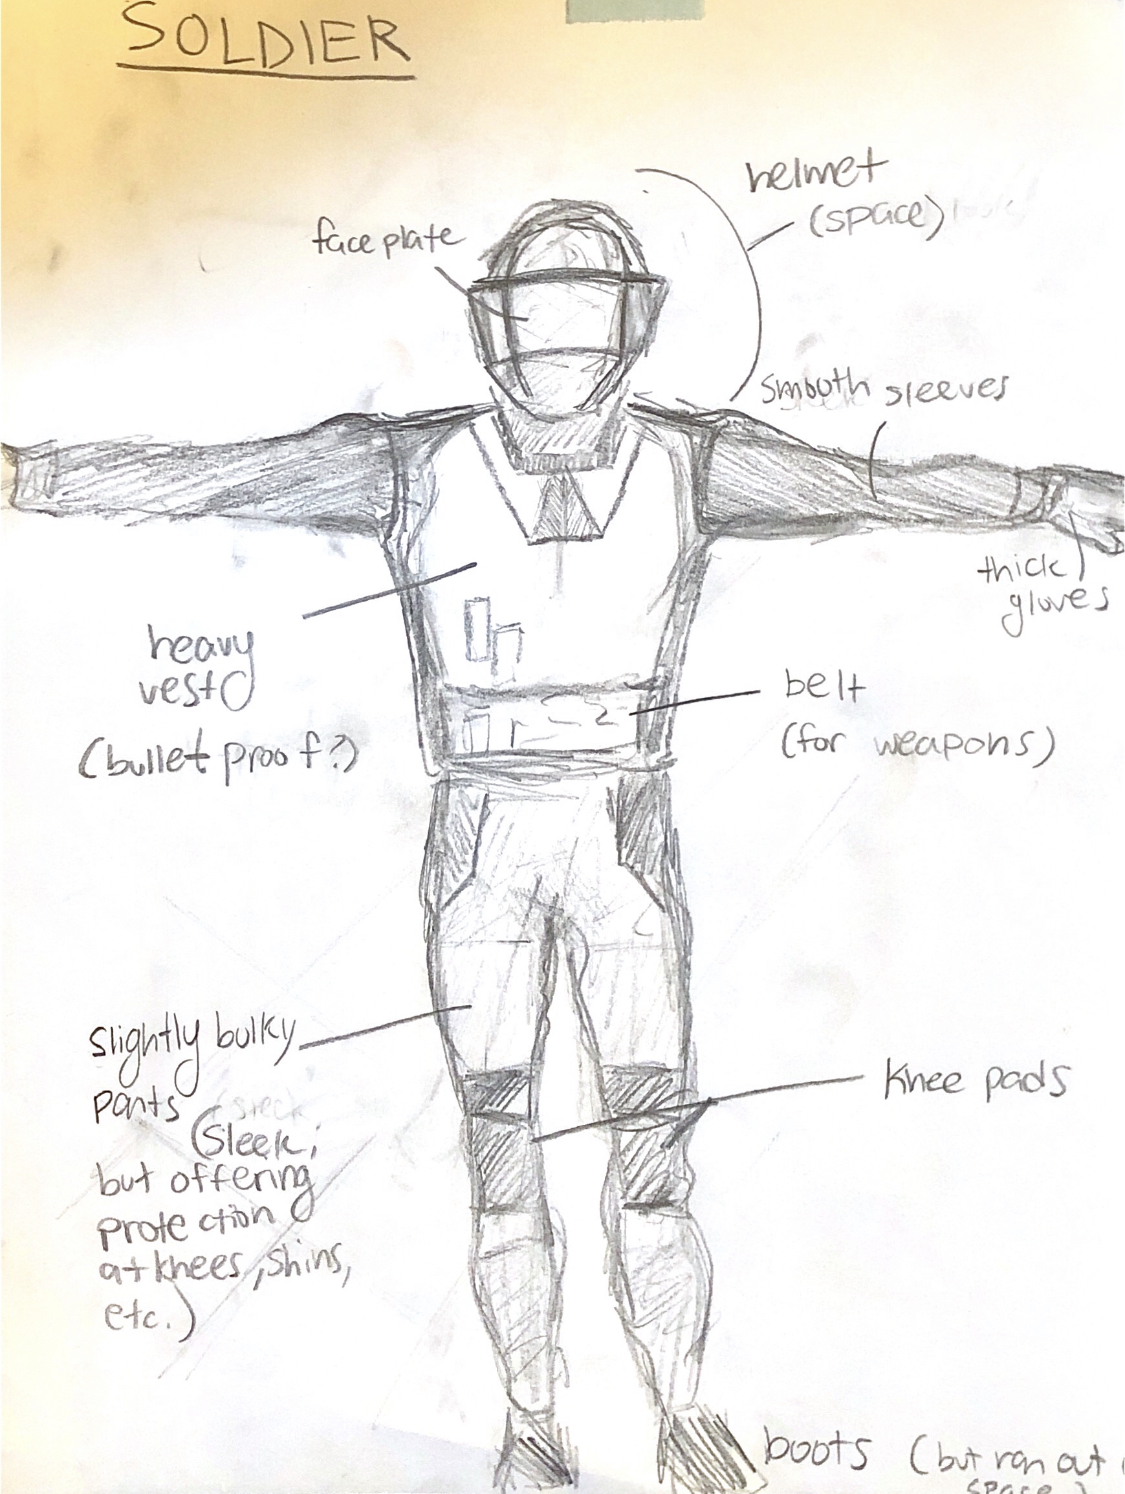 SOLDIER
helmet
(space)
face plate
smooth sleeves
thick
gloves
heavy
vest
(bullet proof?)
belt
(for weapons)
slightly bulky
pants
(Sleek,
but offering
protection
at knees, shins,
etc.)
Knee pads
boots (but ran out
space)